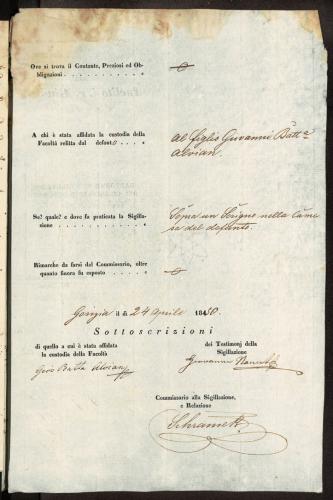 Ove si trova il Contante, Preziosi ed Ob-
bligazioni
A chi è stata affidata la custodia della
Facoltà relitta dal defunto
Al figlio Giovanni Batta
Alvian.
Se? quale? e dove fu praticata la Sigilla-
zione
Sopra un Scrigno nella Came
ra del defunto.
Rimarche da farsi dal Commissario, oltre
quanto finora fu esposto
Gorizia il dì 24 Aprile 1840.
Sottoscrizioni
di quello a cui è stata affidata
la custodia della Facoltà
Gio Batta Alvian
dei Testimonj della
Sigillazione
Giovanni
Commissario alla Sigillazione,
e Relazione
Schramek